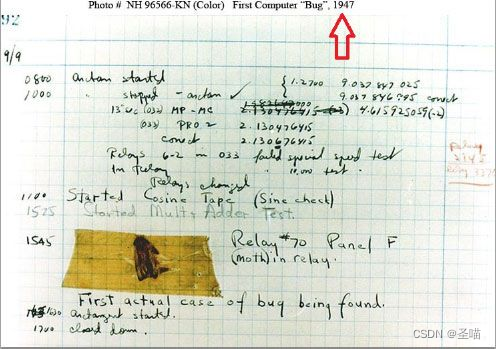 Photo # NH 96566-KN (Color) First Computer "Bug", 1947
92
9/9
0800 antan started
1000 " stopped - antan ✓ { 1.2700 9.037 847 025
9.037 846 995 correct
13"uc (032) MP - MC 2.130476415 4.615925059(-2)
(033) PRO 2 2.130476415
correct 2.130676415
Relays 6-2 in 033 failed special speed test
in relay " 10,000 test.
Relays changed
1100 Started Cosine Tape (Sine check)
1525 Started Mult + Adder Test.
1545 Relay #70 Panel F
(Moth) in relay.
First actual case of bug being found.
1630 antangent started.
1700 closed down.
Relay
2145
Relay
CSDN @圣喵